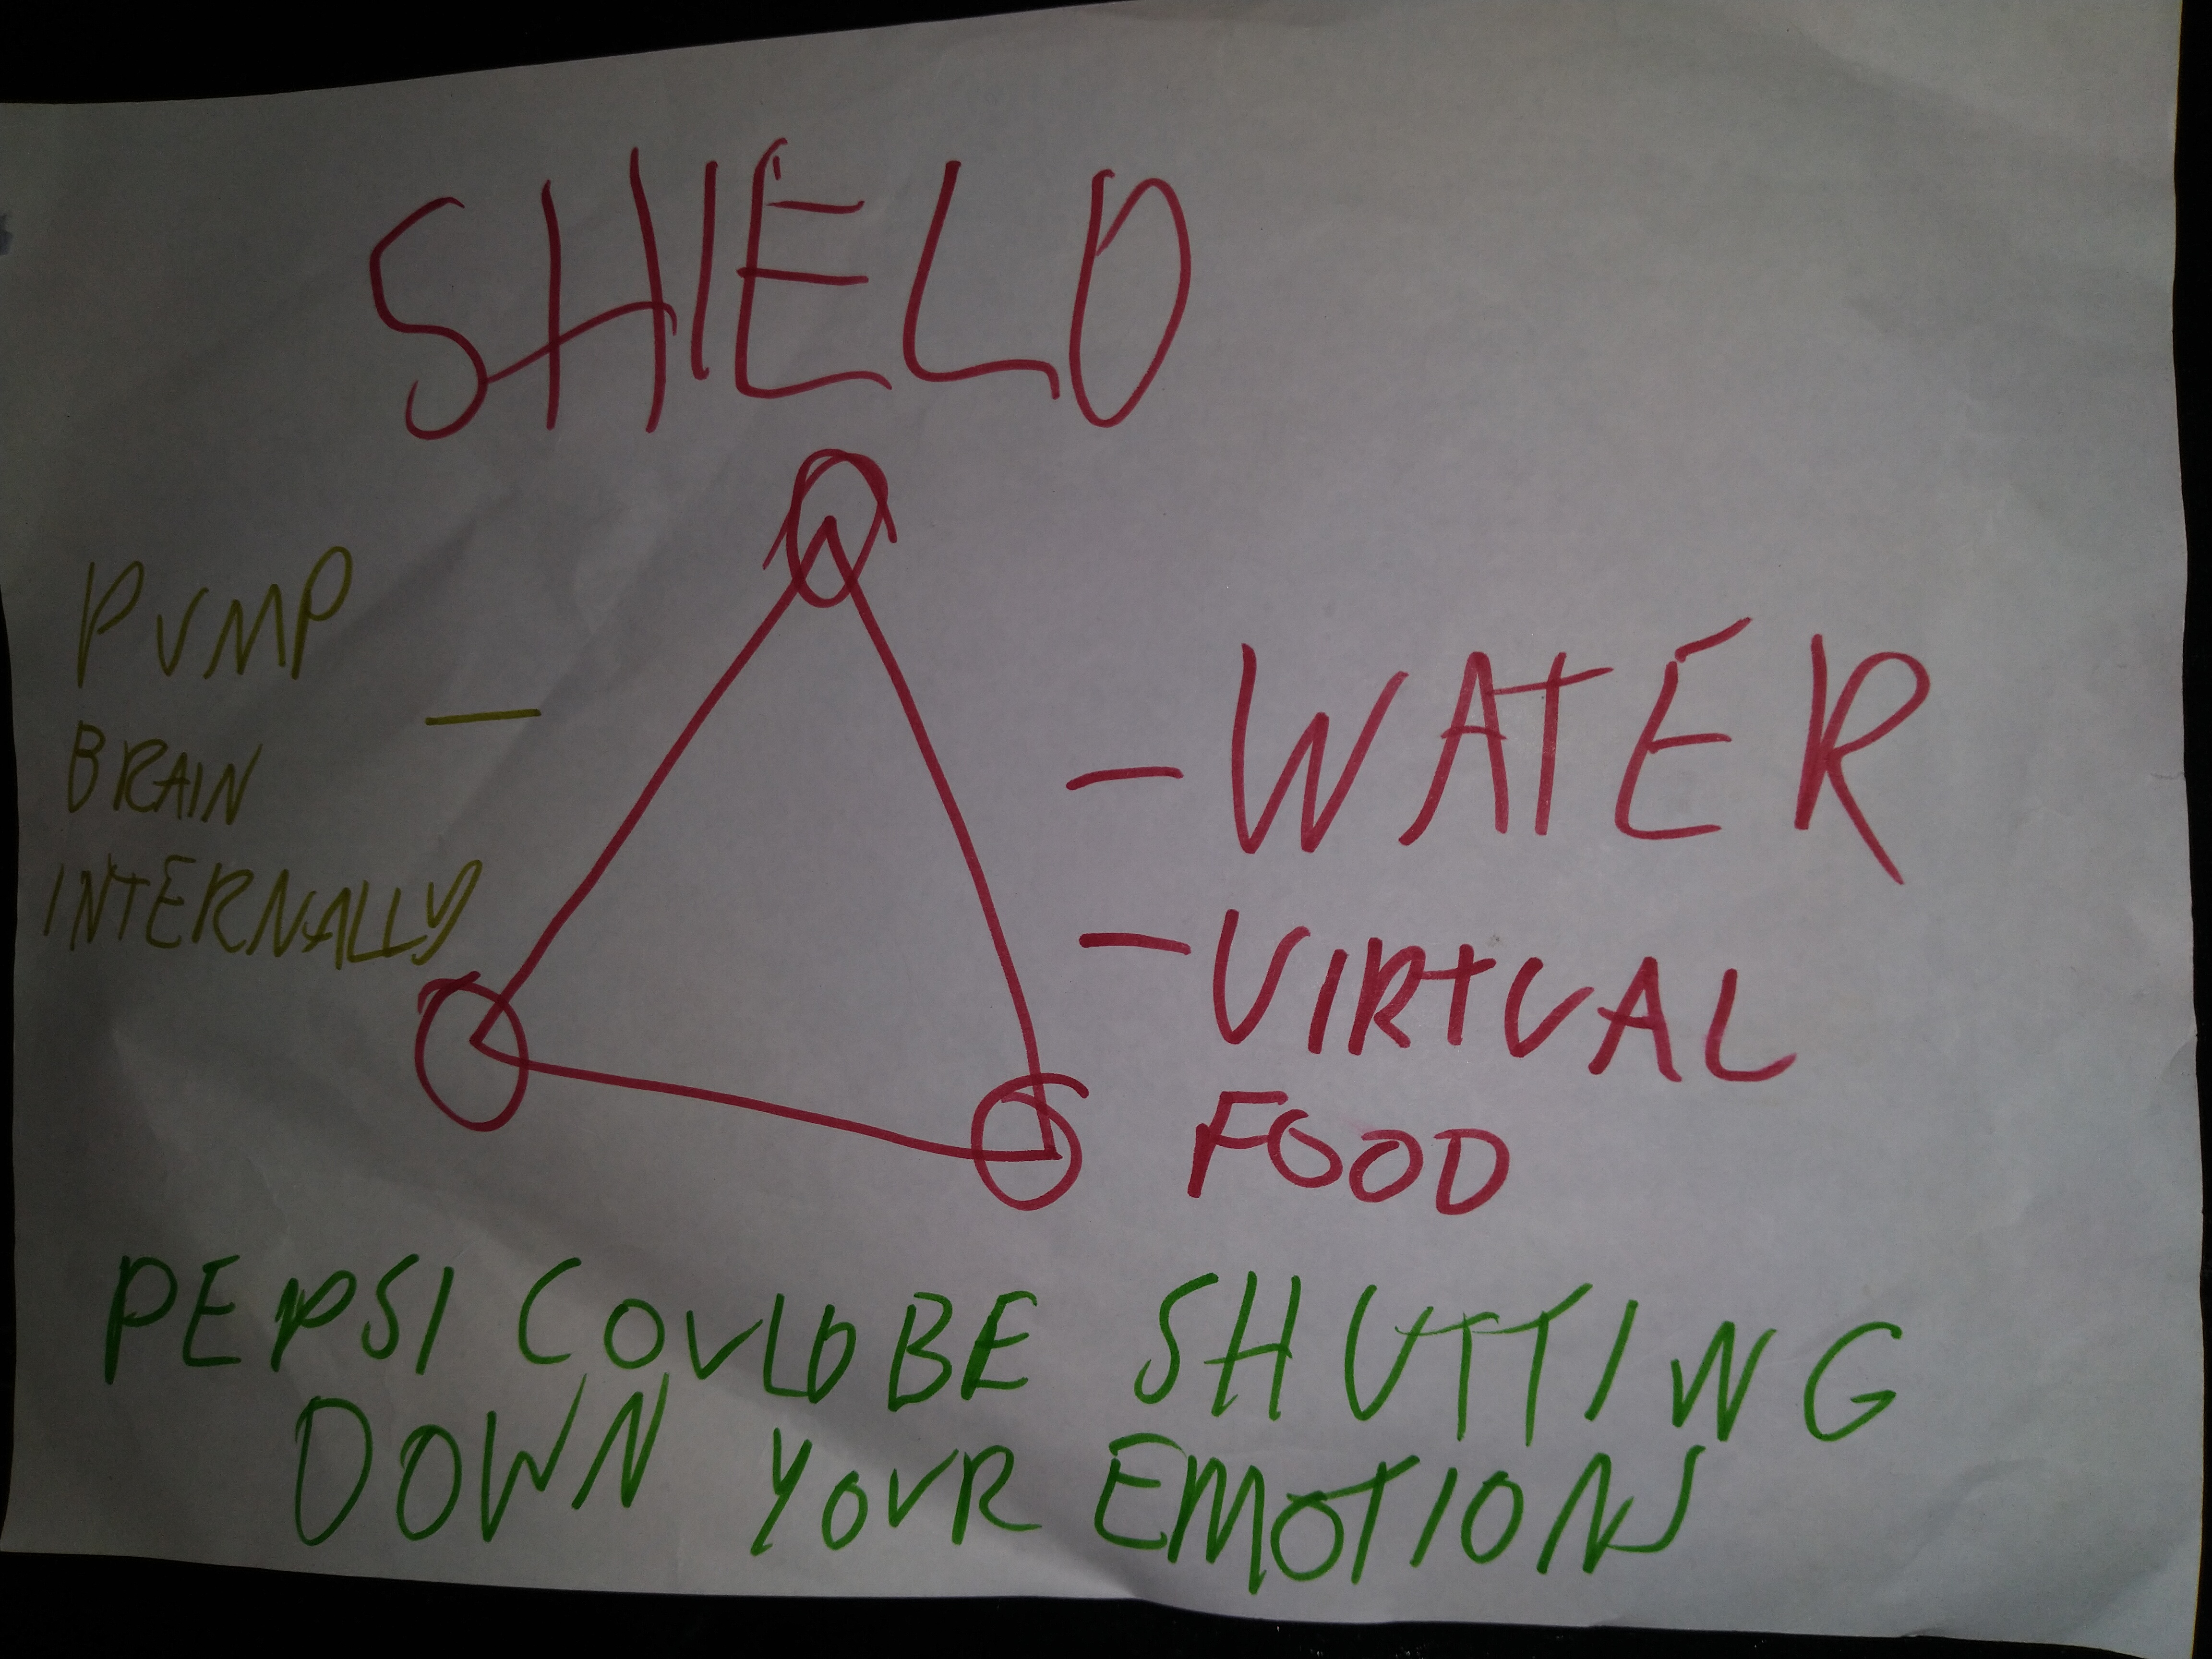 SHIELD
PUMP
BRAIN —
INTERNALLY
- WATER
- VIRTUAL
FOOD
PEPSI COULD BE SHUTTING
DOWN YOUR EMOTIONS